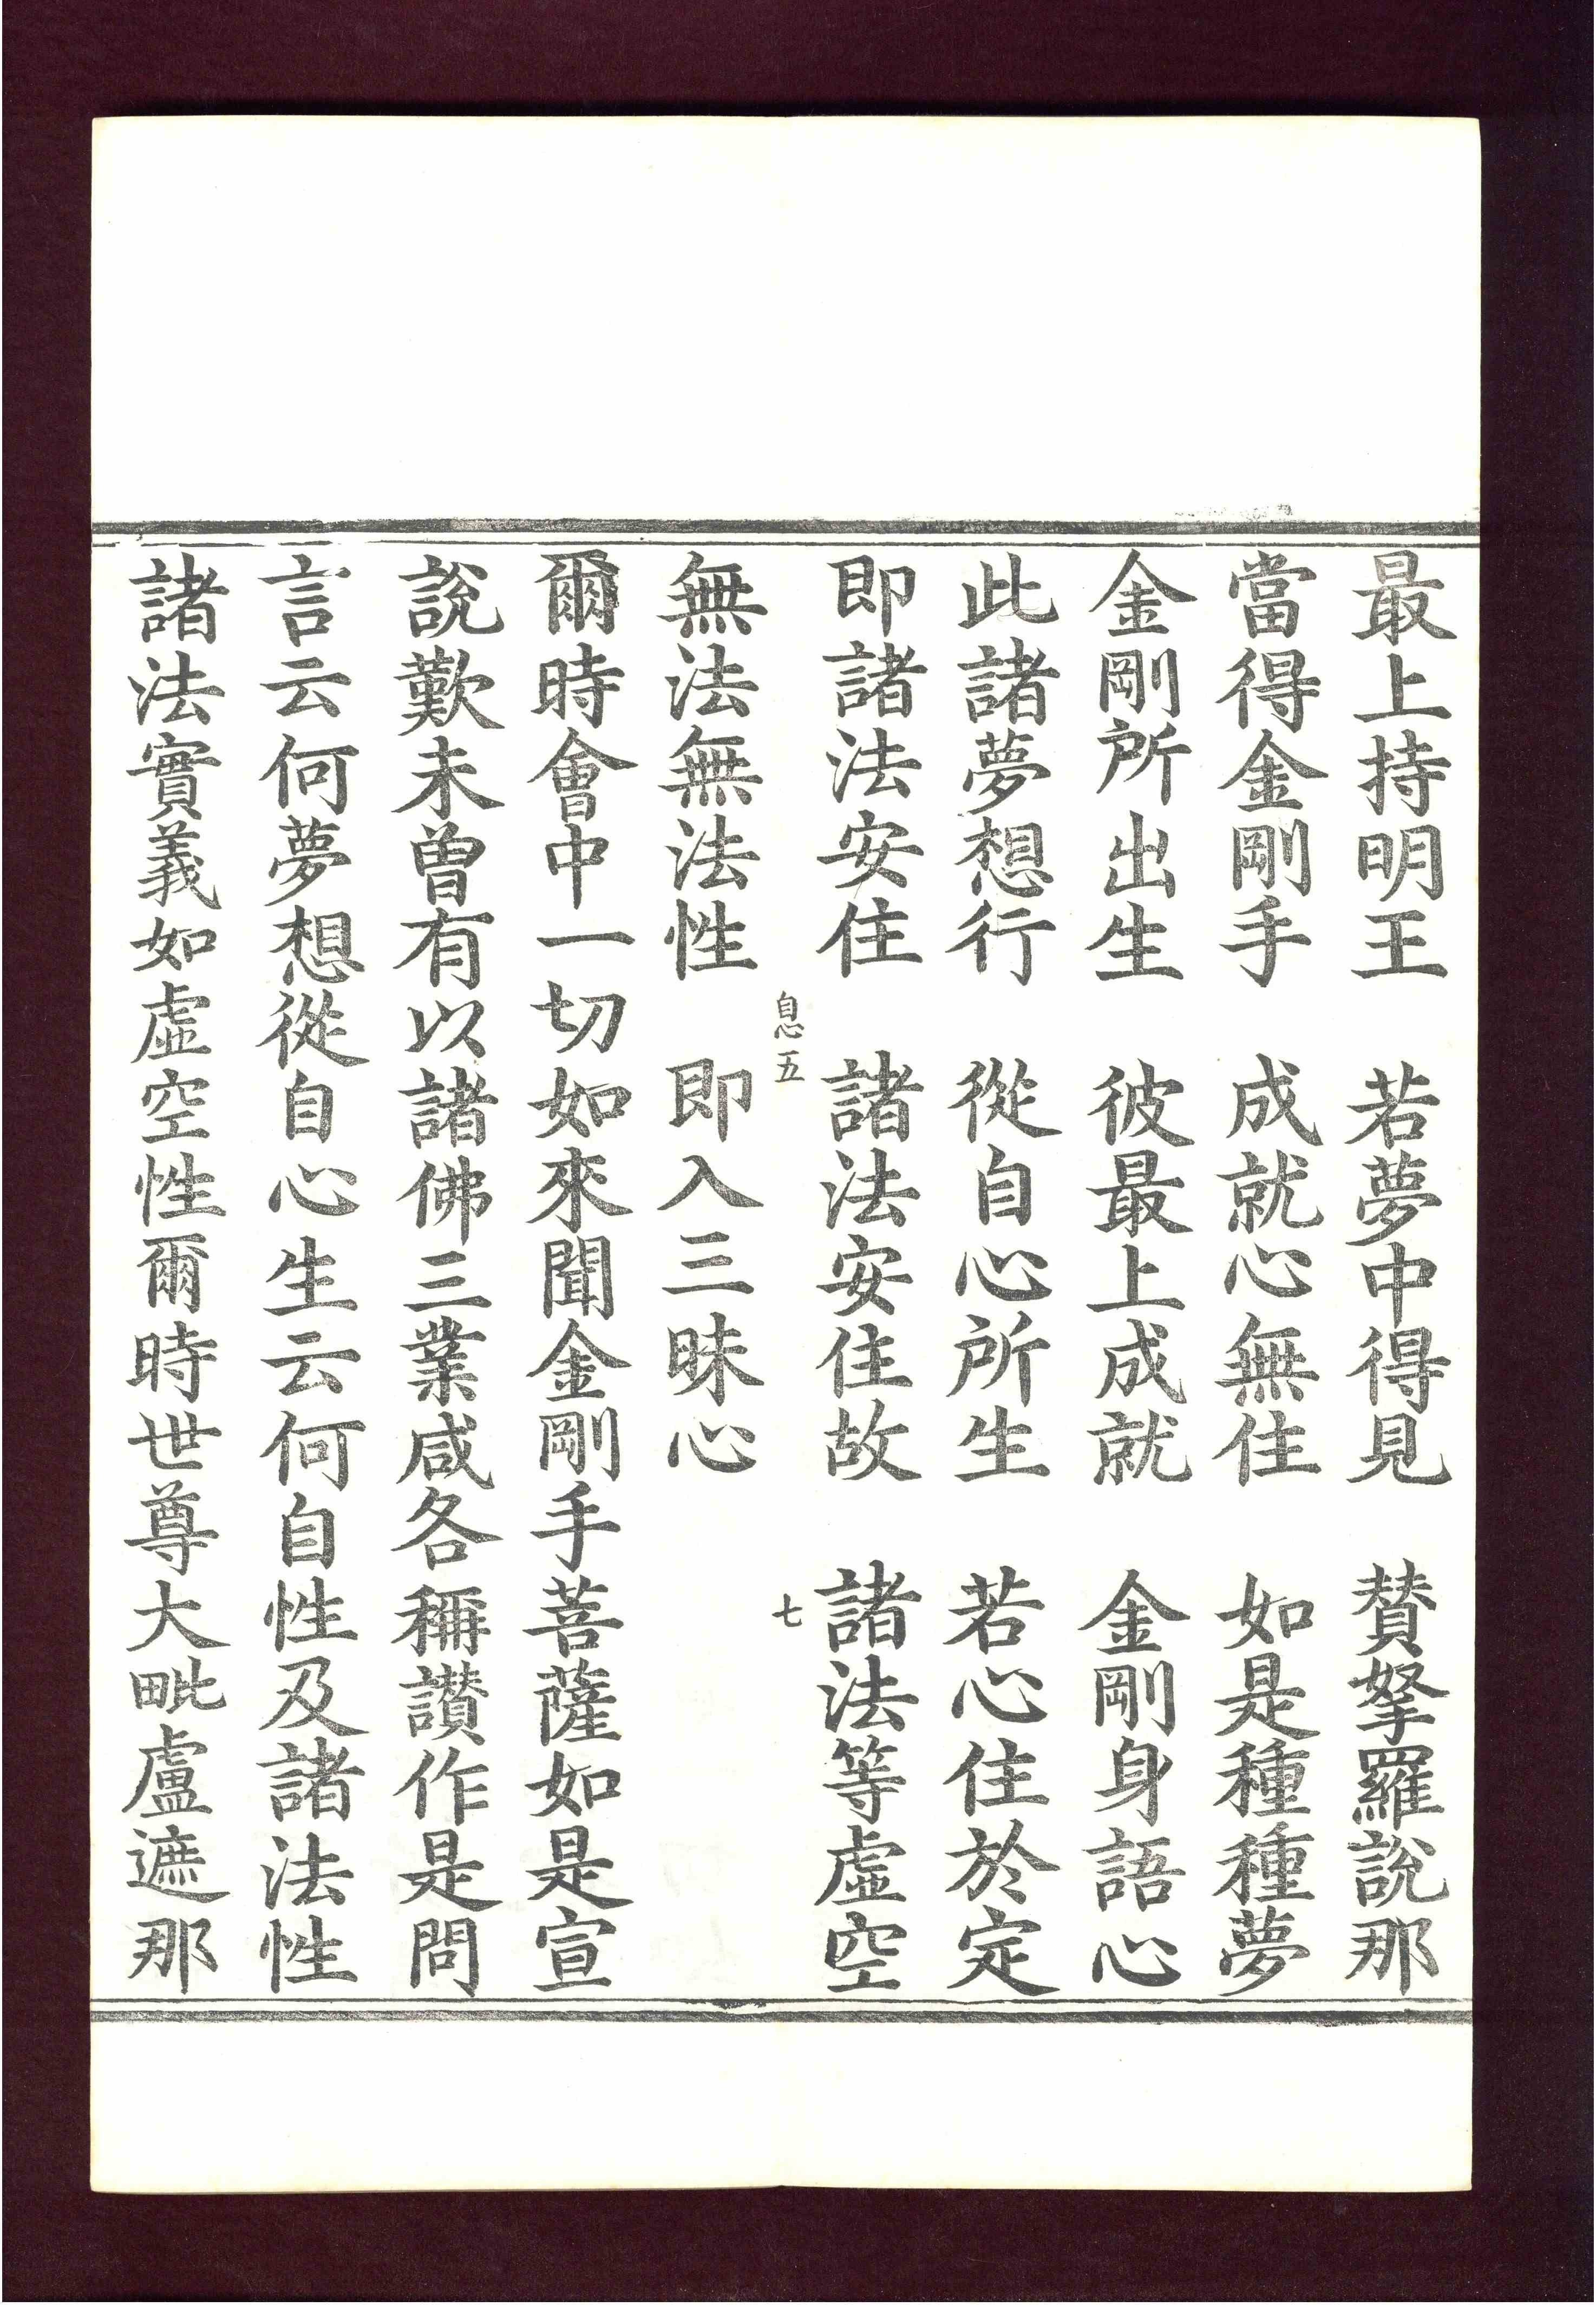 最上持明王　若夢中得見　賛拏羅說那
當得金剛手　成就心無住　如是種種夢
金剛所出生　彼最上成就　金剛身語心
此諸夢想行　從自心所生　若心住於定
即諸法安住　諸法安住故　諸法等虛空
息五　七
無法無法性　即入三昧心
爾時會中一切如來聞金剛手菩薩如是宣
說歎未曾有以諸佛三業咸各稱讃作是問
言云何夢想從自心生云何自性及諸法性
諸法實義如虛空性爾時世尊大毗盧遮那